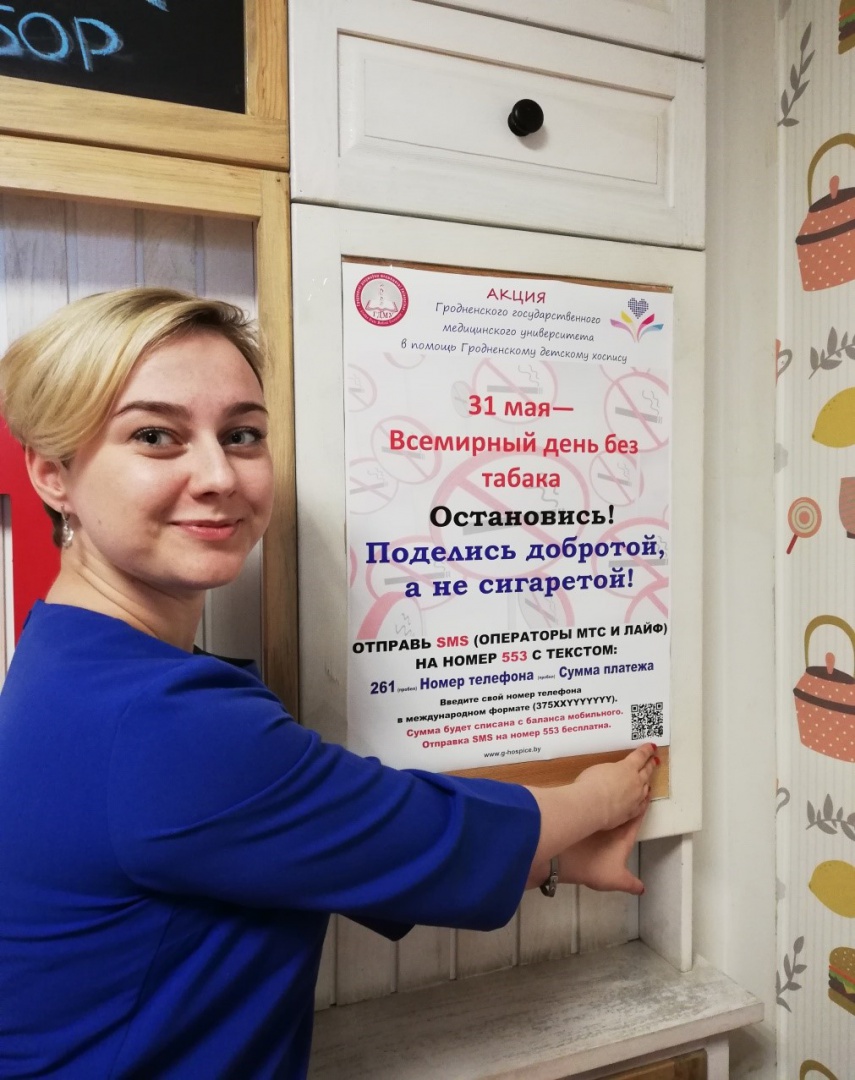 БОР
АКЦИЯ
Гродненского государственного
медицинского университета
в помощь Гродненскому детскому хоспису
ГрГМУ
31 мая—
Всемирный день без
табака
Остановись!
Поделись добротой,
а не сигаретой!
ОТПРАВЬ SMS (ОПЕРАТОРЫ МТС И ЛАЙФ)
НА НОМЕР 553 С ТЕКСТОМ:
261 (пробел) Номер телефона (пробел) Сумма платежа
Введите свой номер телефона
в международном формате (375XXYYYYYYY).
Сумма будет списана с баланса мобильного.
Отправка SMS на номер 553 бесплатна.
www.g-hospice.by